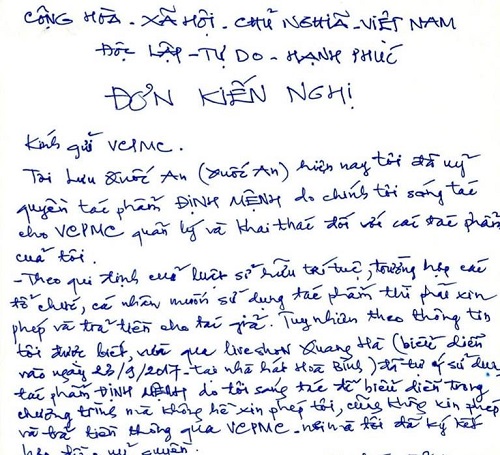 CỘNG HÒA - XÃ HỘI - CHỦ NGHĨA - VIỆT NAM
ĐỘC LẬP - TỰ DO - HẠNH PHÚC
ĐƠN KIẾN NGHỊ
Kính gửi VCPMC.
Tôi Lưu Quốc An (Quốc An) hiện nay tôi đã uỷ
quyền tác phẩm ĐỊNH MỆNH do chính tôi sáng tác
cho VCPMC quản lý và khai thác đối với các tác phẩm
của tôi.
- Theo qui định của luật sở hữu trí tuệ, trường hợp các
tổ chức, cá nhân muốn sử dụng tác phẩm thì phải xin
phép và trả tiền cho tác giả. Tuy nhiên theo thông tin
tôi được biết, vừa qua liveshow Quang Hà (biểu diễn
vào ngày 23/9/2017 - tại nhà hát Hoà Bình) đã tự ý sử dụng
tác phẩm ĐỊNH MỆNH do tôi sáng tác để biểu diễn trong
chương trình mà không hề xin phép tôi, cũng không xin phép
và trả tiền thông qua VCPMC - nơi mà tôi đã ký kết